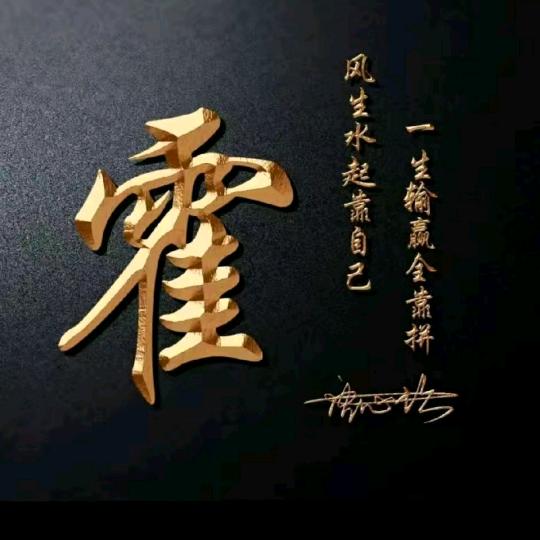 霍
一生输赢全靠拼
风生水起靠自己